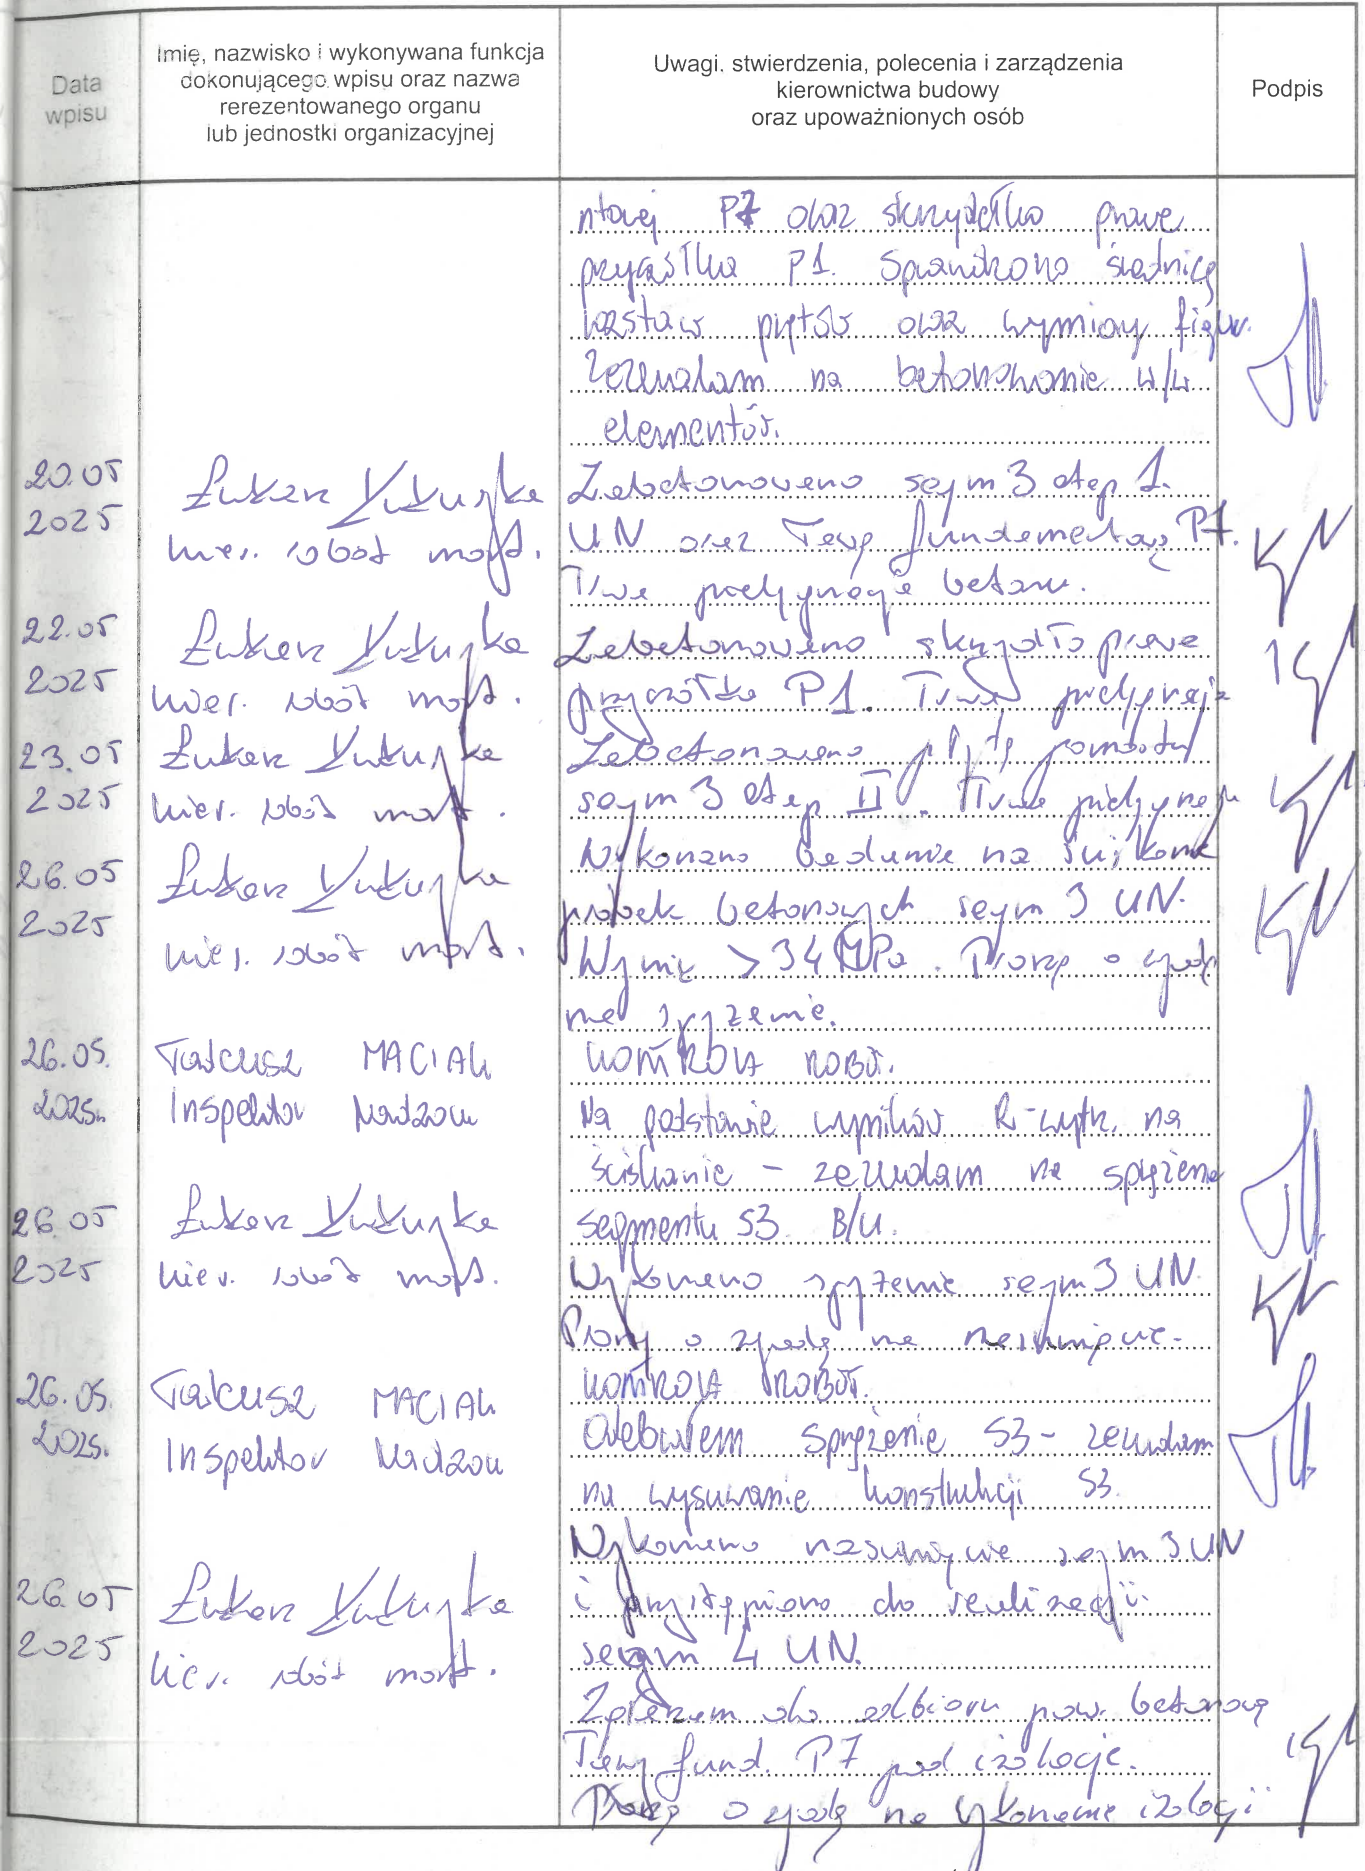 Data
wpisu
Imię, nazwisko i wykonywana funkcja
dokonującego wpisu oraz nazwa
rerezentowanego organu
lub jednostki organizacyjnej
Uwagi, stwierdzenia, polecenia i zarządzenia
kierownictwa budowy
oraz upoważnionych osób
Podpis
ntowej P7 oraz skrzydełko prawe
przyczółka P1. Sprawdzono średnicę
rozstaw prętów oraz wymiary figur.
Zezwalam na betonowanie w/w
elementów.
20.05
2025
Łukasz
kier. robót most.
Zabetonowano segm 3 etap 1.
UN oraz ławę fundamentową P7.
Trwa pielęgnacja betonu.
22.05
2025
Łukasz
kier. robót most.
Zabetonowano skrzydło prawe
przyczółka P1. Trwa pielęgnacja
23.05
2025
Łukasz
kier. robót most.
Zabetonowano płytę pomostu
segm 3 etap II. Trwa pielęgnacja
26.05
2025
Łukasz
kier. robót most.
Wykonano badanie na ściskanie
próbek betonowych segm 3 UN.
Wynik > 34 MPa. Proszę o zgodę
na sprężenie.
26.05.
2025r.
Tadeusz MACIAK
Inspektor Nadzoru
KONTROLA ROBÓT.
Na podstawie wyników R-wytrz. na
ściskanie - zezwalam na sprężenie
segmentu S3 B/U.
26.05
2025
Łukasz
kier. robót most.
Wykonano sprężenie segm 3 UN
Proszę o zgodę na nasunięcie.
26.05.
2025.
Tadeusz MACIAK
Inspektor Nadzoru
KONTROLA ROBÓT.
Odebrałem sprężenie S3 - zezwalam
na wysuwanie konstrukcji S3.
26.05
2025
Łukasz
kier. robót most.
Wykonano nasunięcie segm 3 UN
i przystąpiono do realizacji
segm 4 UN.
Zgłaszam do odbioru pow. betonową
ławy fund. P7 pod izolacje.
Proszę o zgodę na wykonanie izolacji